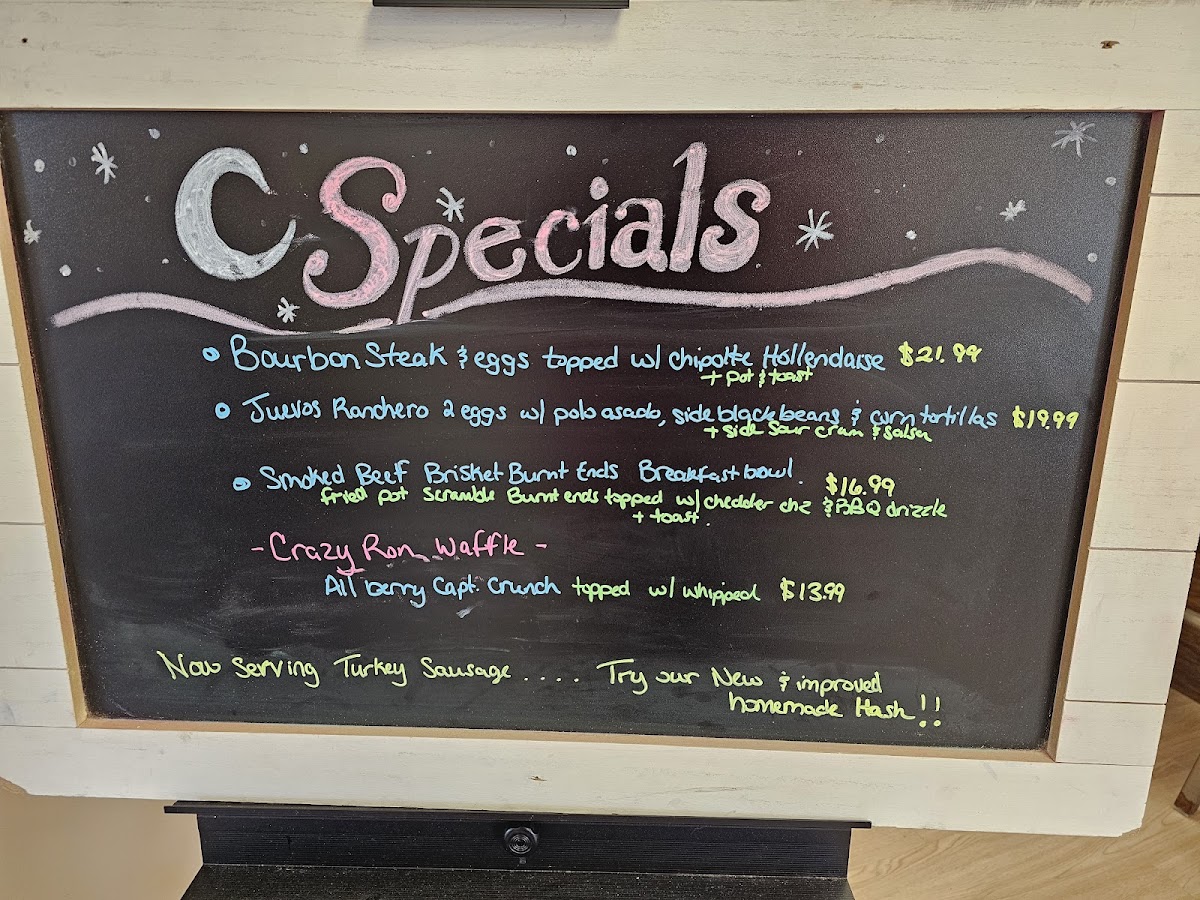 Specials
• Bourbon Steak & eggs topped w/ chipotle Hollendaise $21.99
+ pot & toast
• Juevos Ranchero 2 eggs w/ polo asado, side black beans & corn tortillas $19.99
+ side sour cream & salsa
• Smoked Beef Brisket Burnt Ends Breakfast bowl. $16.99
fried pot scramble Burnt ends topped w/ chedder chz & BBQ drizzle
+ toast.
- Crazy Ron Waffle -
All berry Capt. Crunch topped w/ whipped $13.99
Now Serving Turkey Sausage .... Try our New & improved
homemade Hash!!